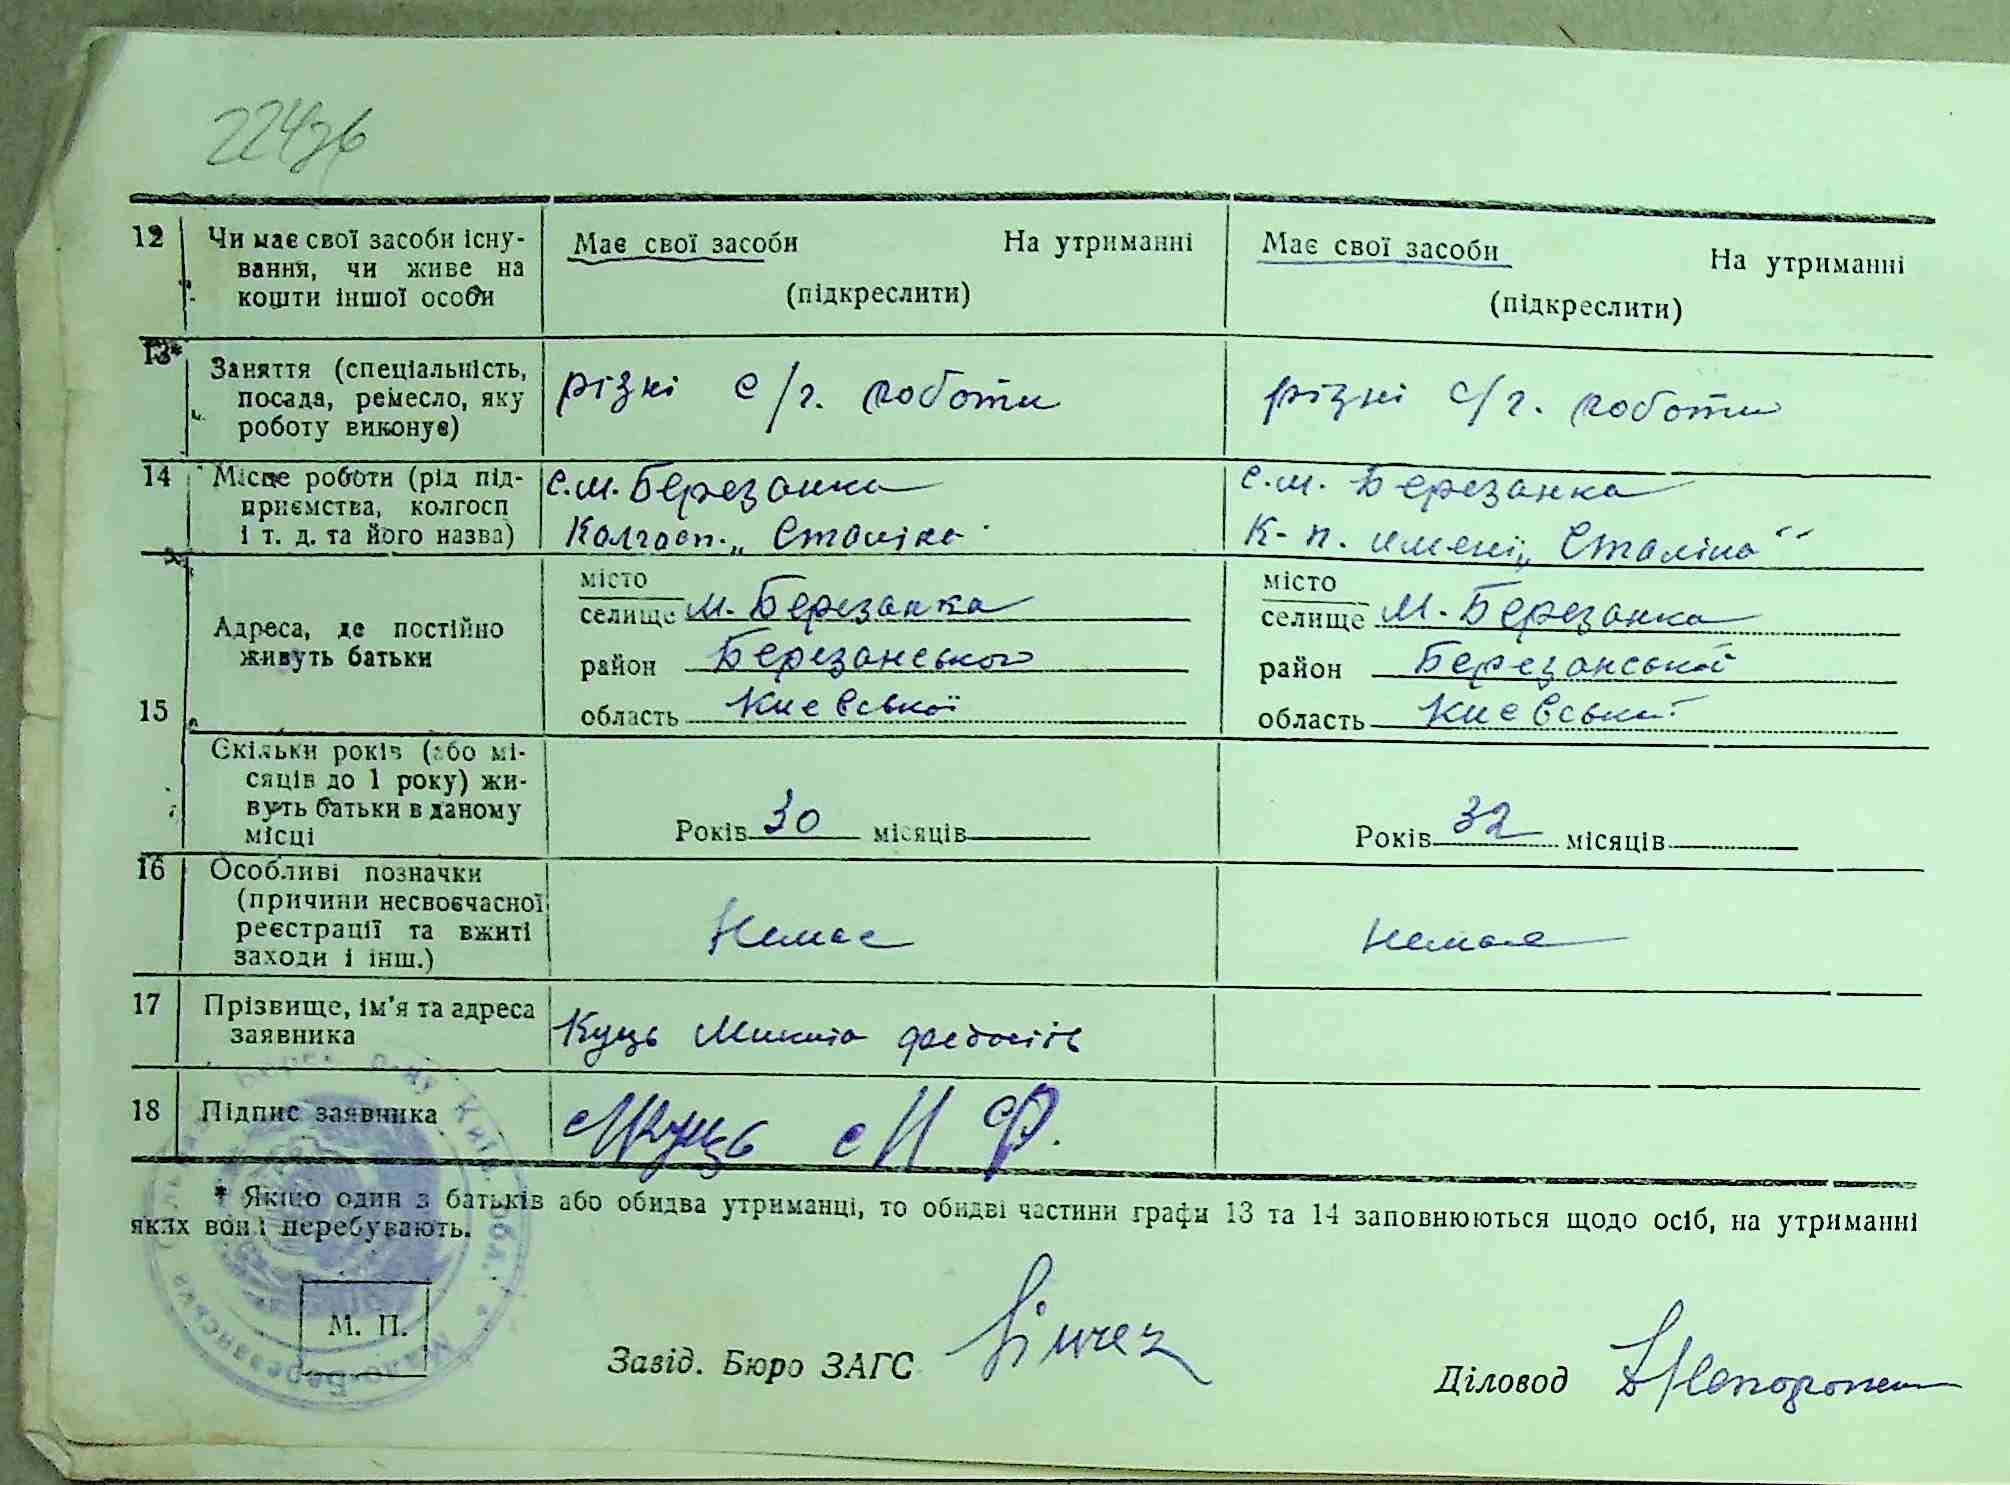 224зв
12 Чи має свої засоби існу- Має свої засоби На утриманні Має свої засоби На утриманні
вання, чи живе на
кошти іншої особи (підкреслити) (підкреслити)
13* Заняття (спеціальність,
посада, ремесло, яку різні с/г. роботи різні с/г. роботи
роботу виконує)
14 Місце роботи (рід під- с.м. Березанка с.м. Березанка
приємства, колгосп
і т. д. та його назва) Колгосп „ Сталіна К-п. имені „ Сталіна"
місто місто
селище М. Березанка селище М. Березанка
Адреса, де постійно
живуть батьки район Березанського район Березанської
15 область Києвської область Києвської
Скільки років (або мі-
сяців до 1 року) жи-
вуть батьки в даному
місці Років 30 місяців Років 32 місяців
16 Особливі позначки
(причини несвоєчасної
реєстрації та вжиті Немає немає
заходи і інш.)
17 Прізвище, ім'я та адреса
заявника Куць Микита
18 Підпис заявника Куць М Ф.
* Якщо один з батьків або обидва утриманці, то обидві частини графи 13 та 14 заповнюються щодо осіб, на утриманні
яких вони перебувають.
М. П.
Завід. Бюро ЗАГС
Діловод